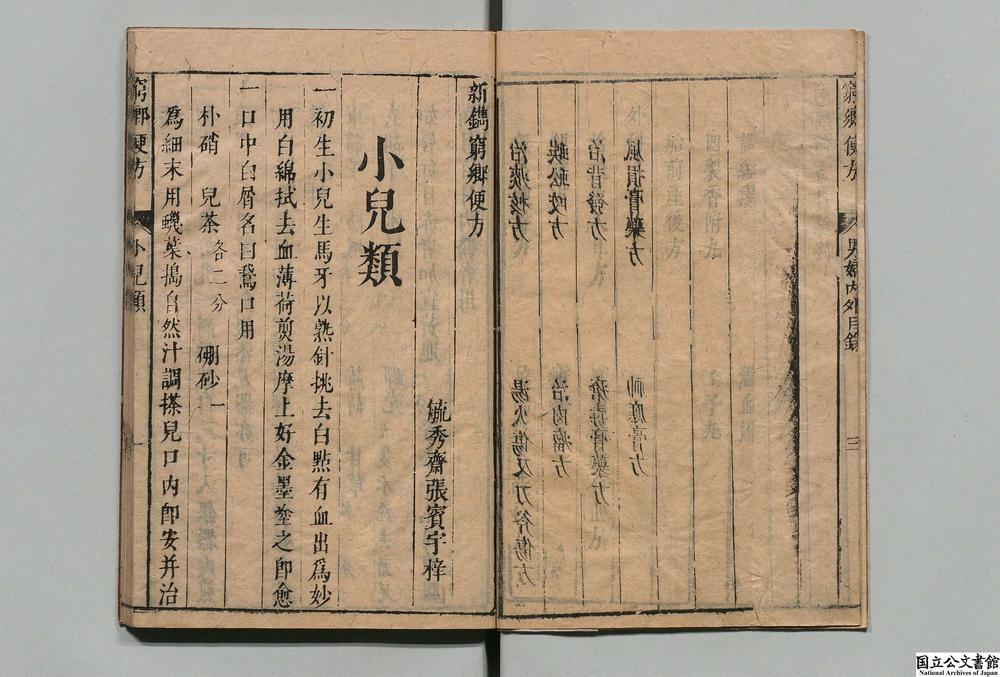 窮鄉便方 男婦內外目錄 三
風損膏藥方 神應膏方
治背發方 瘡毒膏藥方
蜈蚣咬方 治肉瘤方
治痰核方 湯火傷又刀斧傷方
新鐫窮鄉便方
毓秀齋張賓宇梓
小兒類
一初生小兒生馬牙以熟針挑去白點有血出爲妙
用白綿拭去血薄荷煎湯摩上好金墨塗之卽愈
一口中白屑名曰鵞口用
朴硝 兒茶各二分 硼砂一
爲細末用蟣菜搗自然汁調搽兒口內卽安并治
窮鄉便方 小兒類 一
国立公文書館
National Archives of Japan